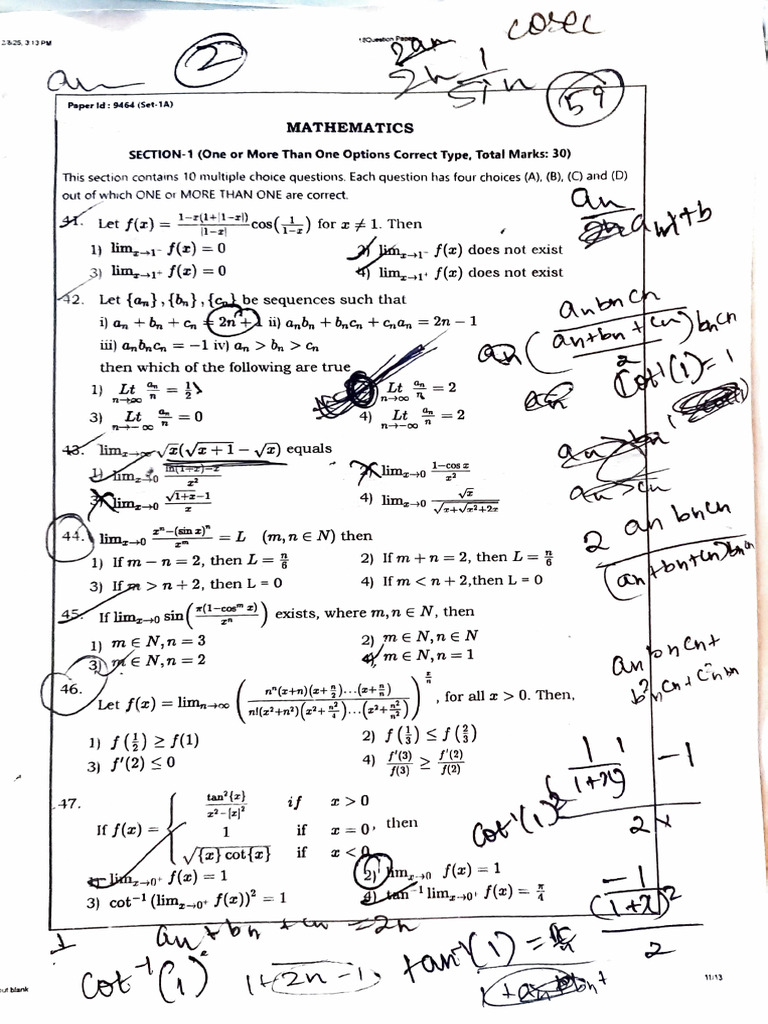 2/8/25, 3:13 PM
cosec
2an
an
2
2n 1/sin
59
Paper Id : 9464 (Set-1A)
MATHEMATICS
SECTION-1 (One or More Than One Options Correct Type, Total Marks: 30)
This section contains 10 multiple choice questions. Each question has four choices (A), (B), (C) and (D)
out of which ONE or MORE THAN ONE are correct.
41. Let f(x) = \frac{1-x(1+|1-x|)}{|1-x|} cos(\frac{1}{1-x}) for x ≠ 1. Then
1) lim_{x→1^-} f(x) = 0 2) lim_{x→1^-} f(x) does not exist
3) lim_{x→1^+} f(x) = 0 4) lim_{x→1^+} f(x) does not exist
42. Let {a_n}, {b_n}, {c_n} be sequences such that
i) a_n + b_n + c_n = 2n + 1 ii) a_nb_n + b_nc_n + c_na_n = 2n - 1
iii) a_nb_nc_n = -1 iv) a_n > b_n > c_n
then which of the following are true
1) Lt_{n→∞} \frac{a_n}{n} = \frac{1}{2} Lt_{n→∞} \frac{a_n}{n} = 2
3) Lt_{n→-∞} \frac{a_n}{n} = 0 4) Lt_{n→-∞} \frac{a_n}{n} = 2
43. lim_{x→∞} \sqrt{x}(\sqrt{x+1} - \sqrt{x}) equals
1) lim_{x→0} \frac{ln(1+x)-x}{x^2} 2) lim_{x→0} \frac{1-cos x}{x^2}
3) lim_{x→0} \frac{\sqrt{1+x}-1}{x} 4) lim_{x→0} \frac{\sqrt{x}}{\sqrt{x+\sqrt{x^2+2x}}}
44. lim_{x→0} \frac{x^n-(sin x)^n}{x^m} = L (m, n ∈ N) then
1) If m - n = 2, then L = \frac{n}{6} 2) If m + n = 2, then L = \frac{n}{6}
3) If m > n + 2, then L = 0 4) If m < n + 2,then L = 0
45. If lim_{x→0} sin(\frac{π(1-cos^m x)}{x^n}) exists, where m, n ∈ N, then
1) m ∈ N, n = 3 2) m ∈ N, n ∈ N
3) m ∈ N, n = 2 4) m ∈ N, n = 1
46. Let f(x) = lim_{n→∞} (\frac{n^n(x+n)(x+\frac{n}{2})...(x+\frac{n}{n})}{n!(x^2+n^2)(x^2+\frac{n^2}{4})...(x^2+\frac{n^2}{n^2})})^{\frac{x}{n}}, for all x > 0. Then,
1) f(\frac{1}{2}) ≥ f(1) 2) f(\frac{1}{3}) ≤ f(\frac{2}{3})
3) f'(2) ≤ 0 4) \frac{f'(3)}{f(3)} ≥ \frac{f'(2)}{f(2)}
47.
\frac{tan^2{x}}{x^2-[x]^2} if x > 0
If f(x) = { 1 if x = 0, then
\sqrt{{x} cot{x}} if x < 0
1) lim_{x→0^+} f(x) = 1 2) lim_{x→0} f(x) = 1
3) cot^{-1}(lim_{x→0^+} f(x))^2 = 1 4) tan^{-1} lim_{x→0^+} f(x) = \frac{π}{4}
an + bn + cn = 2n
cot^{-1}(1)^2
1+2n-1
tan^{-1}(1) =
an bn cn
(an+bn+cn) bncn
2
cot^{-1}(1)=1
an > cn
2 an bn cn
an bn cn +
\frac{1}{(1+x)} - 1
2x
cot^{-1}(1)^2
\frac{-1}{(1+x)^2}
2
11/13
out blank